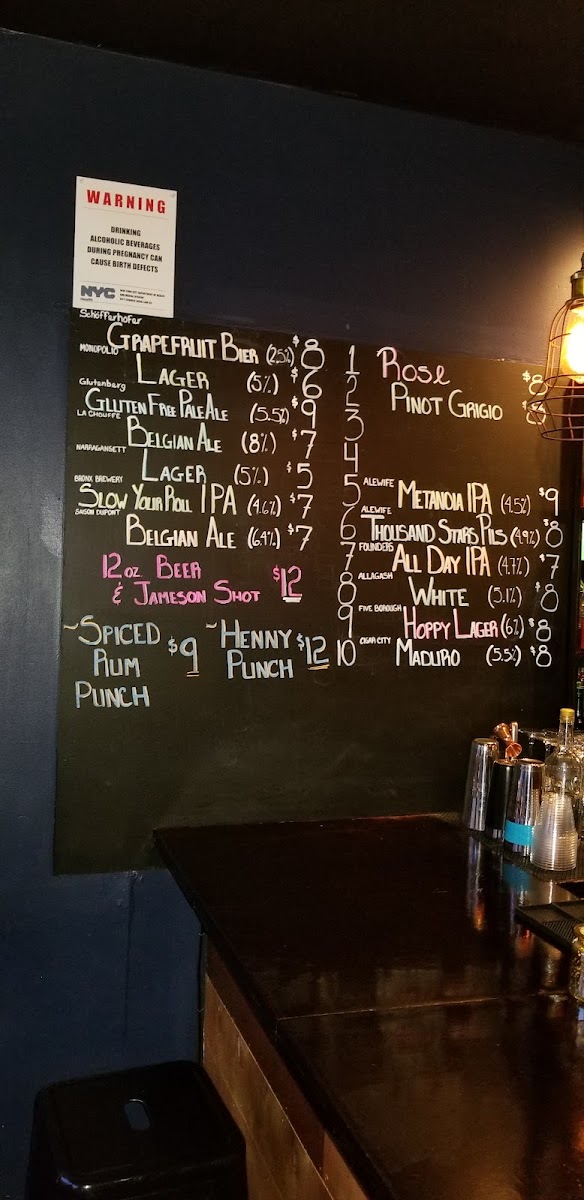 WARNING
DRINKING
ALCOHOLIC BEVERAGES
DURING PREGNANCY CAN
CAUSE BIRTH DEFECTS
NYC
Schöfferhofer
GRAPEFRUIT BIER (2.5%) $8
MONOPOLIO
LAGER (5%) $6
Glutenberg
GLUTEN FREE PALE ALE (5.5%) $9
LA CHOUFFE
BELGIAN ALE (8%) $7
NARRAGANSETT
LAGER (5%) $5
BRONX BREWERY
SLOW YOUR ROLL IPA (4.6%) $7
SAISON DUPONT
BELGIAN ALE (6.4%) $7
12 oz BEER
& JAMESON SHOT $12
~SPICED
RUM
PUNCH $9
~HENNY
PUNCH $12
1 ROSE $8
2 PINOT GRIGIO $8
3
4
5 ALEWIFE METANOIA IPA (4.5%) $9
6 ALEWIFE THOUSAND STARS PILS (4.9%) $8
7 FOUNDERS ALL DAY IPA (4.7%) $7
8 ALLAGASH WHITE (5.1%) $8
9 FIVE BOROUGH HOPPY LAGER (6%) $8
10 CIGAR CITY MADURO (5.5%) $8